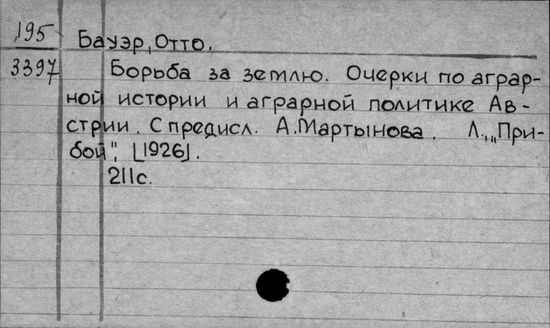 195 Бауэр, Отто.
3397 Борьба за землю. Очерки по аграр-
ной истории и аграрной политике Ав-
стрии. С предисл. А. Мартынова. Л., „При-
бой", [1926].
211с.